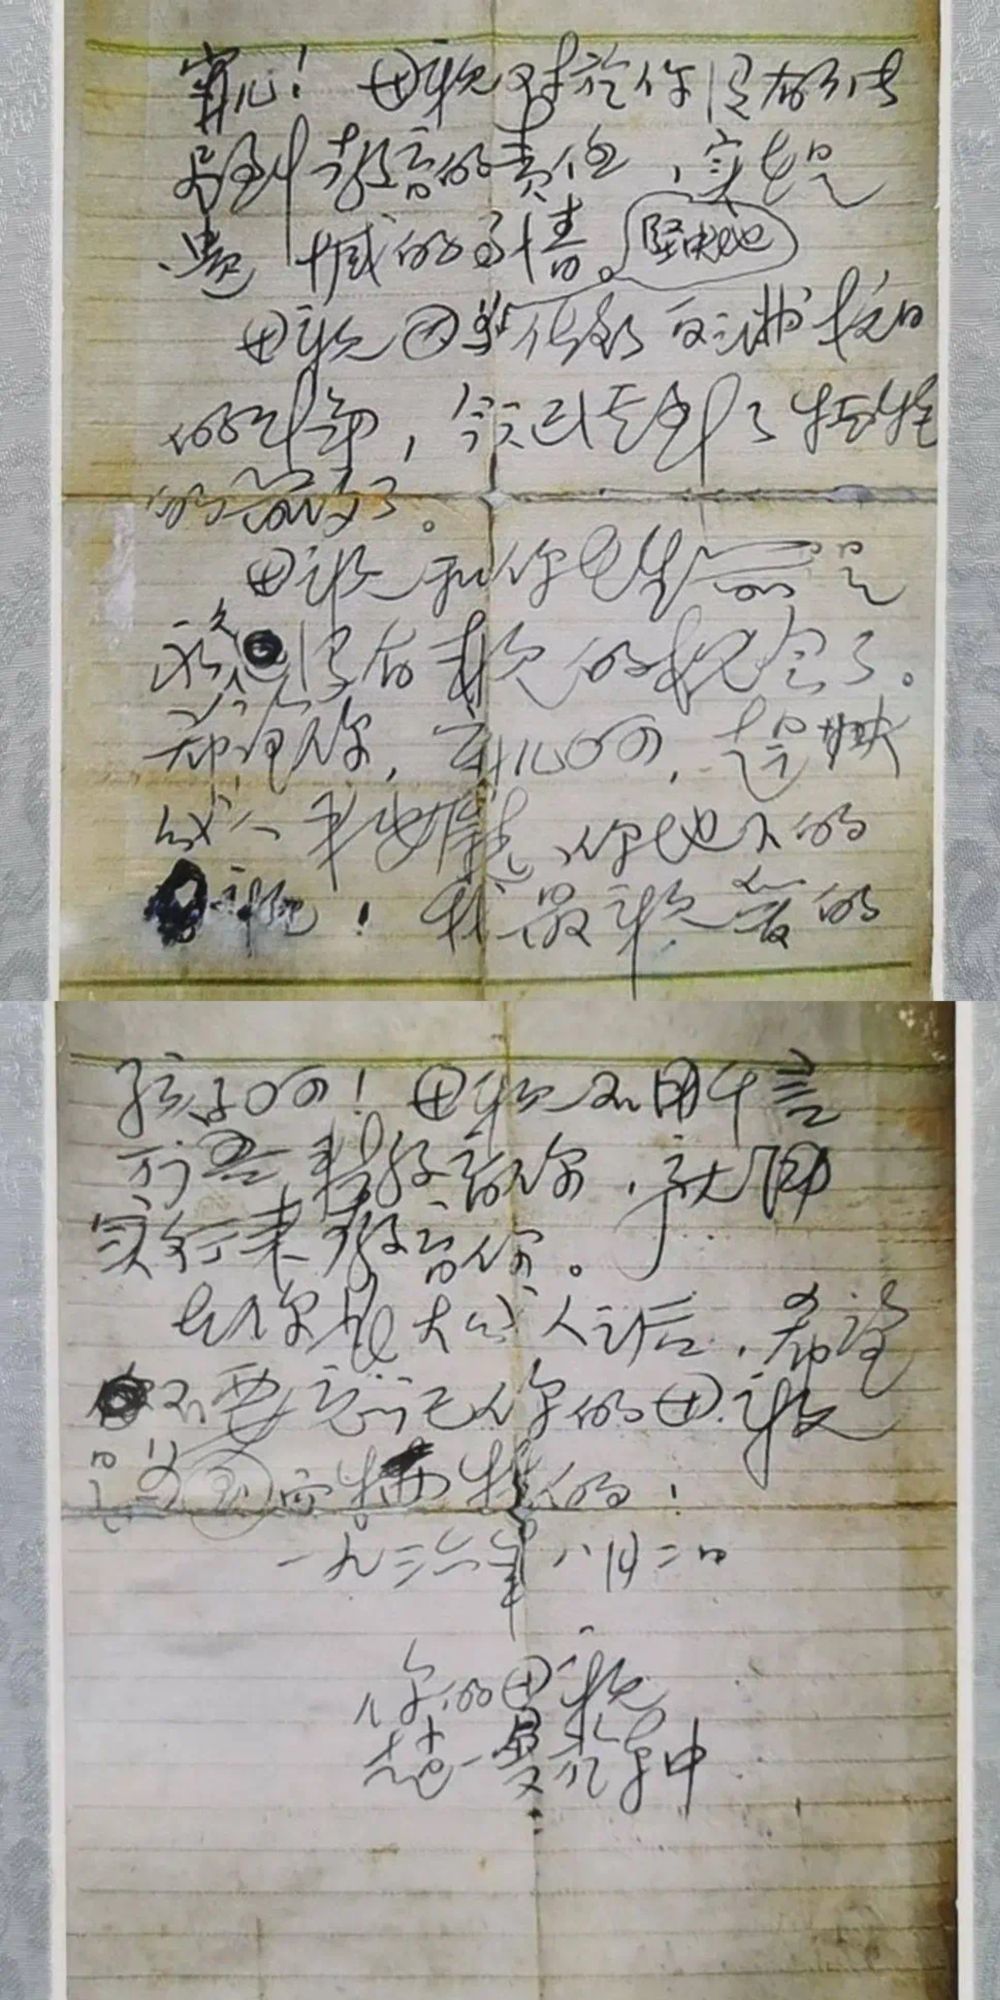 宁儿！母親对於你没有能
尽到教育的责任，实在是
遗憾的事情。坚决地
母親因为做了反满抗日
的斗争，今天已经到了牺牲
的前夕了。
母親和你在生前是
永久没有再見的机会了。
希望你，宁儿啊，赶快
成人来安慰你地下的
母親！我最親爱的
孩子啊！母親不用千言
万语来教育你，就用
实行来教育你。
在你長大成人之后，希望
不要忘记你的母親
是为国而牺牲的！
一九三六年八月二日
你的母親
赵一曼於车中